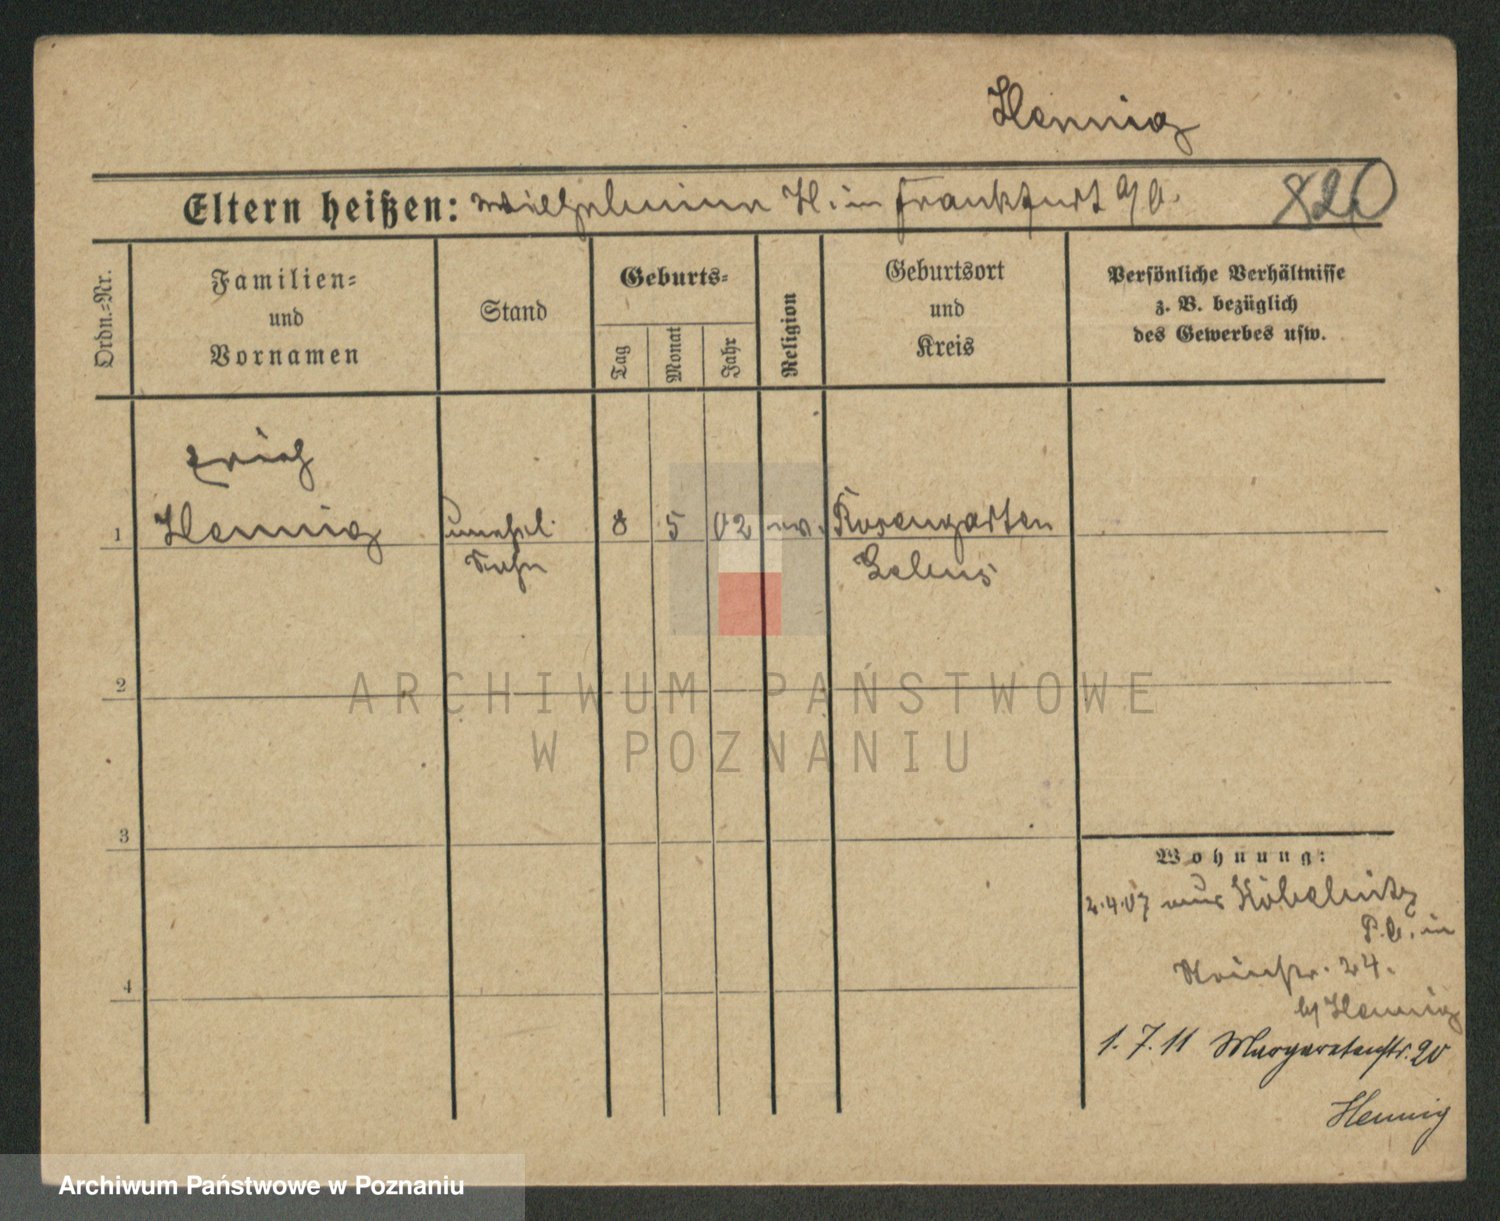 Hennig
Eltern heißen: Wilhelmine H. in Frankfurt a/O. 820
Ordn.-Nr.
Familien-
und
Vornamen
Stand
Geburts-
Tag
Monat
Jahr
Religion
Geburtsort
und
Kreis
Persönliche Verhältnisse
z. B. bezüglich
des Gewerbes usw.
Erich
1 Hennig unehel. 8 5 02 ev. Rosengarten
Sohn Lebus
2
ARCHIWUM PAŃSTWOWE
W POZNANIU
3
Wohnung:
2.4.07 aus Kobelnitz
P.O. in
24.
b/ Hennig
4
1.7.11 Margaretenstr. 20
Hennig
Archiwum Państwowe w Poznaniu